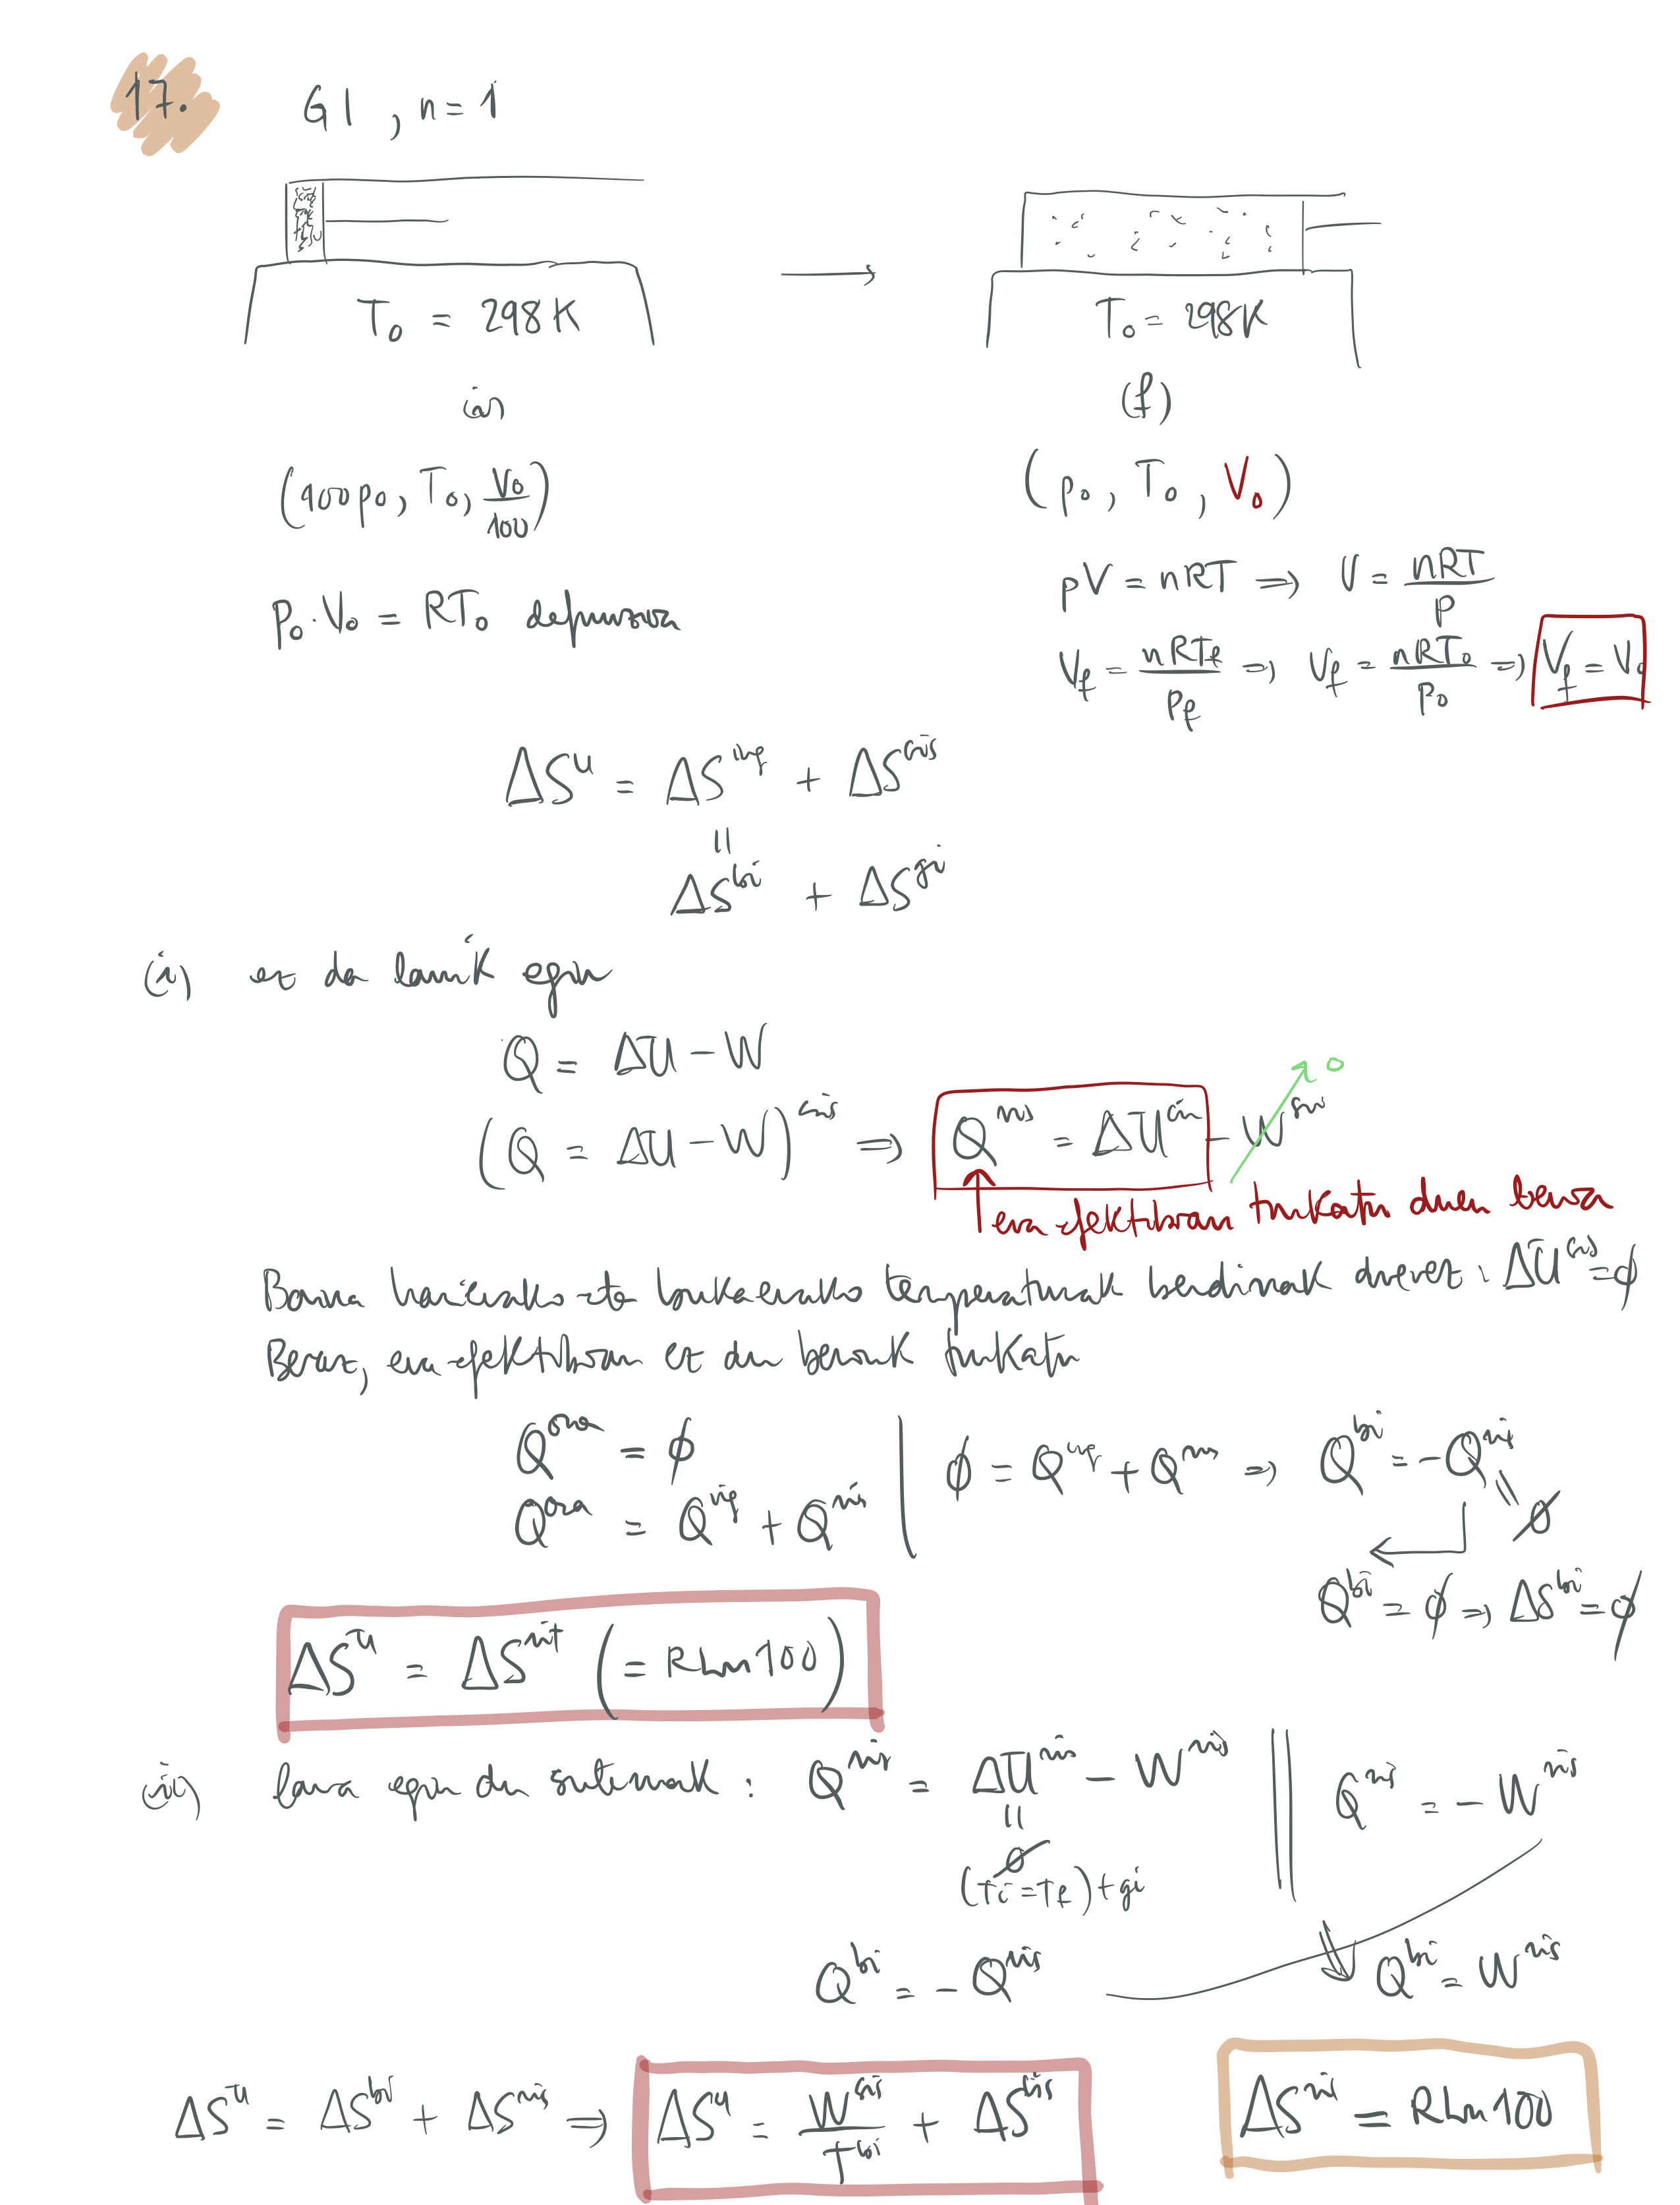 17. GI , n = 1
T₀ = 298 K
T₀ = 298K
(i)
(f)
(100 p₀, T₀, V₀/100)
(p₀, T₀, V₀)
pV = nRT ⇒ V = nRT/p
p₀·V₀ = RT₀ definizioa
V_f = nRT_f/p_f ⇒ V_f = nRT₀/p₀ ⇒ V_f = V₀
ΔSᵘ = ΔS^ing + ΔS^sis
=
ΔS^bi + ΔS^gi
(i) ez da lanik egin
Q = ΔU − W
(Q = ΔU − W)^sis ⇒ Q^sis = ΔU^sis − W^sis → 0
era efektiboan trukatu duen beroa
Baina hasierako eta bukaerako temperaturak berdinak direnez: ΔU^sis = ϕ
Beraz, era efektiboan ez du berorik trukatu
Q^oroa = ϕ
Q^oroa = Q^ing + Q^sis
ϕ = Q^ing + Q^sis ⇒ Q^bi = −Q^sis
= 0
Q^bi = ϕ ⇒ ΔS^bi = ϕ
ΔSᵘ = ΔS^sist (= R Ln 100)
(ii) lana egin du sistemak : Q^sis = ΔU^sis − W^sis
Q^sis = − W^sis
=
0
(Ti = Tf) + gi
Q^bi = − Q^sis
⇓ Q^bi = W^sis
ΔSᵘ = ΔS^bi + ΔS^sis ⇒ ΔSᵘ = W^sis/T^bi + ΔS^sis
ΔS^sis = R Ln 100